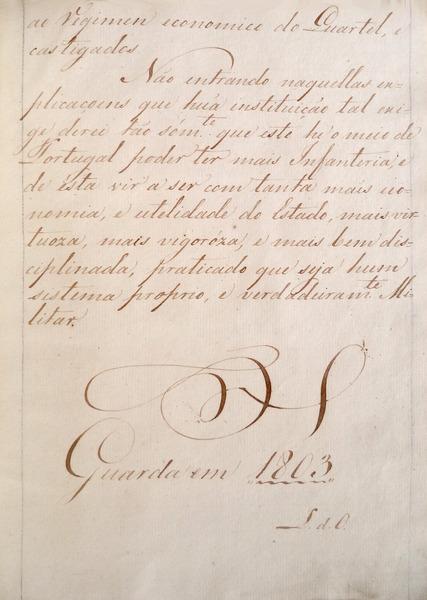 ao Regimen economico do Quartel, e
castigados
Não entrando naquéllas ex-
plicacoens que huã instituição tal exi-
ge direi tão sóm.te que este hé o meio de
Portugal poder ter mais Infanteria, e
de ésta vir a ser com tanta mais eco-
nomia, e utelidade do Estado, mais vir-
tuoza, mais vigoróza, e mais bem dis-
ciplinada, praticado que seja hum
sistema proprio, e verdadeiram.te Mi-
litar.
Guarda em 1803
L. d. O.